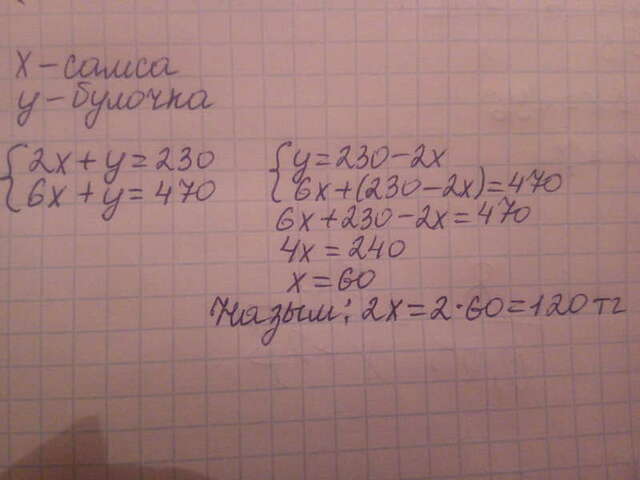 x – самса
y – булочка
2x + y = 230
6x + y = 470
y = 230 – 2x
6x + (230 – 2x) = 470
6x + 230 – 2x = 470
4x = 240
x = 60
2x = 2 · 60 = 120 тг